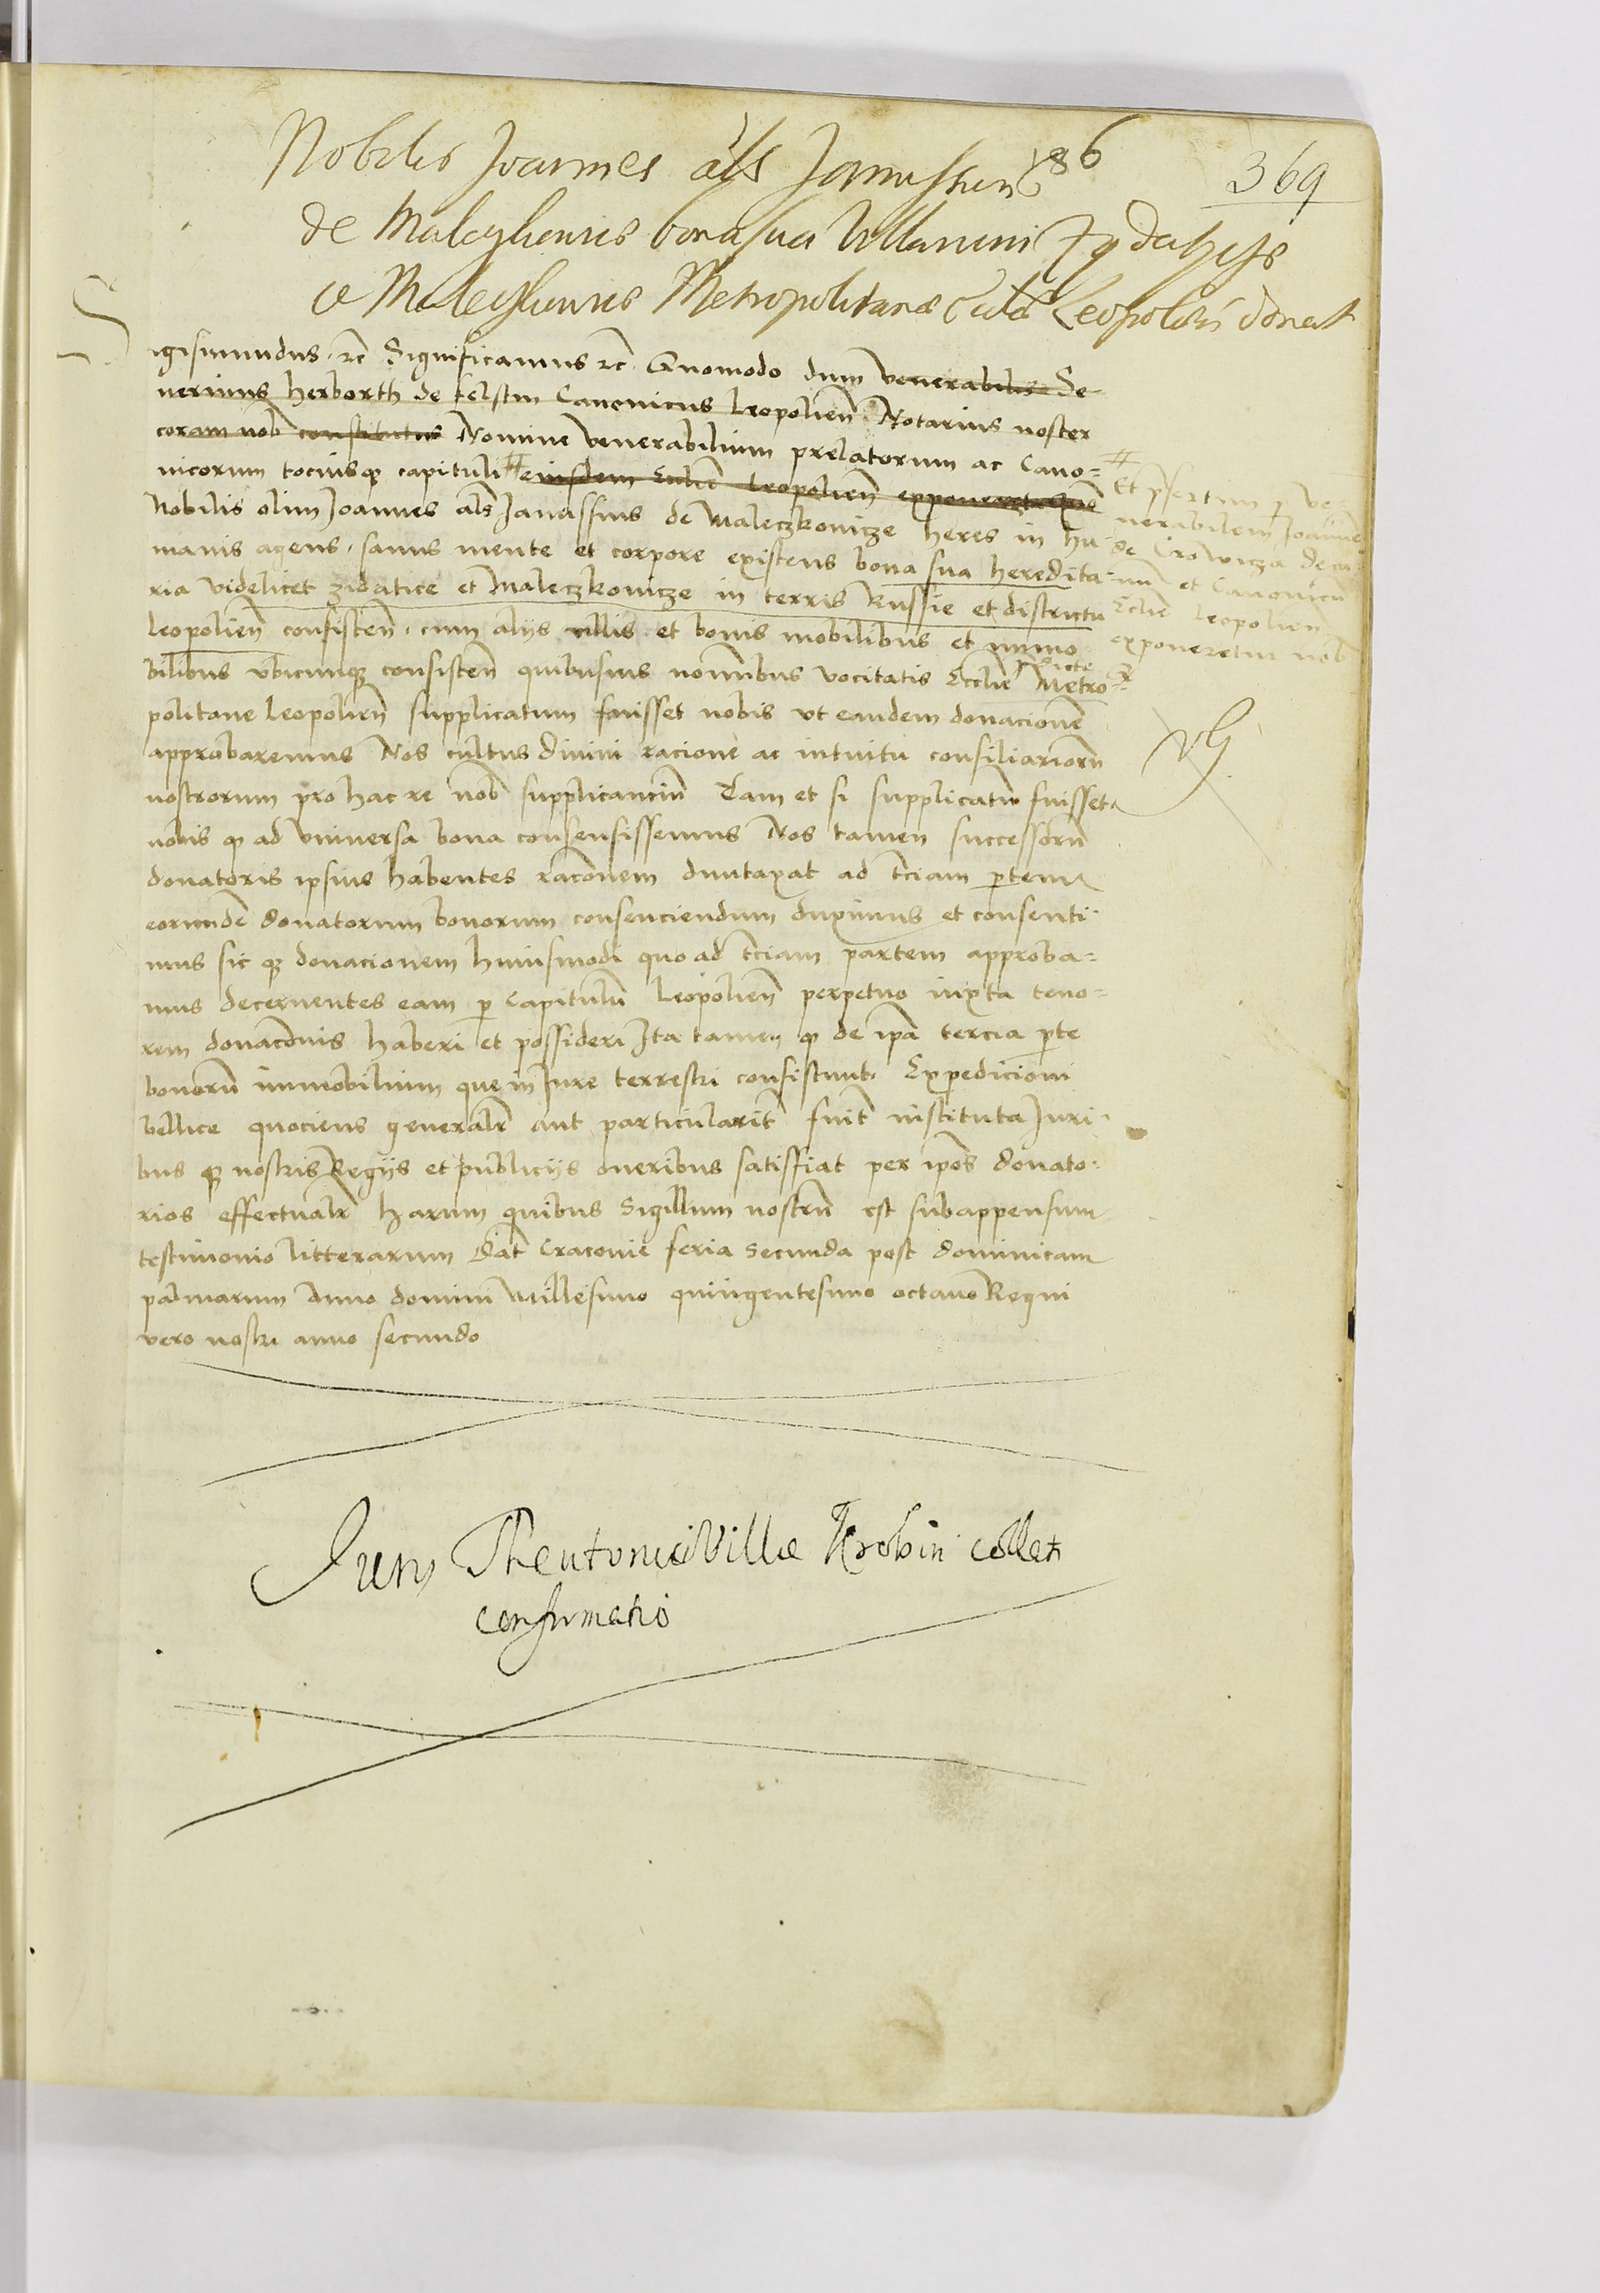 186
369
Nobilis Joannes als Janussius
de Maleczkowice bona sua Villarum Zydaticze
et Maleczkowice Metropolitanae Ecclae Leopolien donat
Sigismundus · rc̃ Significamus rc̃ · Quomodo dum venerabilis Se-
uerinus herborth de felstin Canonicus Leopolien̄ Notarius noster
coram nob̄ constitutus Nomine venerabilium prelatorum ac Cano=
nicorum tociusq̧ capituli # eiusdem Eccl̄ie Leopolien̄ exponeret
Nobilis olim Joannes als̄ Janussius de Maleczkowicze heres in hu
manis agens · sanus mente et corpore existens bona sua heredita-
ria videlicet zidatice et Maleczkowicze in terris Russie et districtu
Leopolien̄ consisten̄ · cum alijs villis · et bonis mobilibus et immo
bilibus vbicunq̧ consisten̄ quibusuis nomībus vocitatis Eccl̄ie Metro=
politane Leopolien̄ supplicatum fuisset nobis vt eandem donacionē
approbaremus Nos cultus diuini racione ac intuitu consiliariorū
nostrorum pro hac re nob̄ supplicanciū Tam et si supplicatū fuisset
nobis q̧ ad vniuersa bona consensissemus Nos tamen successorū
donatoris ipsius habentes racōnem duntaxat ad tciam p̱tem
eorundē donatorum bonorum consenciendum duximus et consenti
mus sic q̧ donacionem huiusmodi quo ad tciam partem approba=
mus decernentes eam p̱ Capitulū Leopolien̄ perpetuo iuxta teno=
rem donacōnis haberi et possideri Ita tamen q̧ de ip̄a tercia p̱te
bonorū immobilium que in Jure terrestri consistunt · Expedicioni
bellice quociens general̄r aut particularit̄ fuit̄ instituta Juri
bus q̧ nostris Regijs et publicijs oneribus satisfiat per ip̄os donato=
rios effectual̄r harum quibus Sigillum nostrū est subappensum
testimonio litterarum Dat̄ Cracouie feria secunda post dominicam
palmarum Anno domini Millesimo quingentesimo octauo Regni
vero nostri anno secundo
# Et p̄sertim p̱ ve
nerabilem Joannē
de Crowicza deca
nū et Canonicū
Eccl̄ie Leopolien̄
exponeretur nob̄
Juris Theutonici Villae Krobin collati
confirmatio